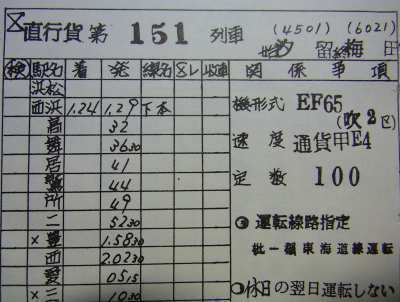 直行貨第 151 列車 (4501) (6021)
始汐留終梅田
検 駅名 着 発 線名 関係事項
浜松
西浜 1.24 1.29 下本
高 32
舞 36 30
居 41
鷲 44
所 49
二 52 30
×豊 1.58 30
西 2.02 30
愛 05 15
×三 10 30
機形式 EF65
(吹2区)
速度 通貨甲E4
定数 100
運転線路指定
牝一類東海道線運転
休日の翌日運転しない